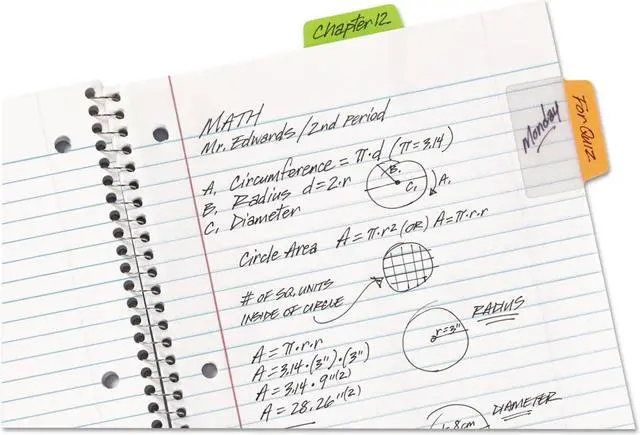 Chapter 12
Monday
For Quiz
MATH
Mr. Edwards / 2nd Period
A. Circumference = π·d (π=3.14)
B. Radius d=2·r
C. Diameter
B.
C.
A.
Circle Area A=π·r² (OR) A=π·r·r
# OF SQ. UNITS
INSIDE OF CIRCLE
RADIUS
r=3"
A=π·r·r
A=3.14·(3")·(3")
A=3.14·9"(2)
A=28.26"(2)
DIAMETER
8cm